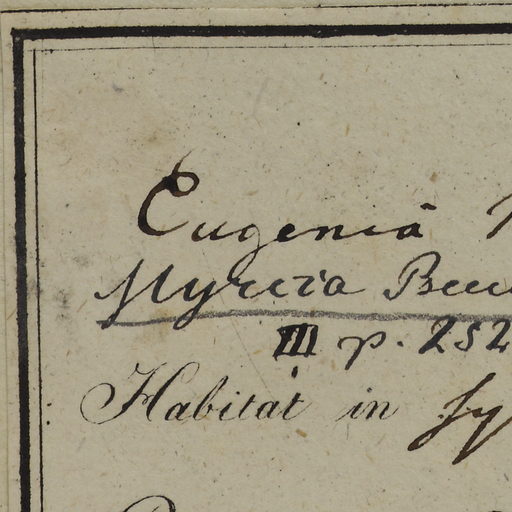 Eugenia
Myrcia
III p. 252
Habitat in